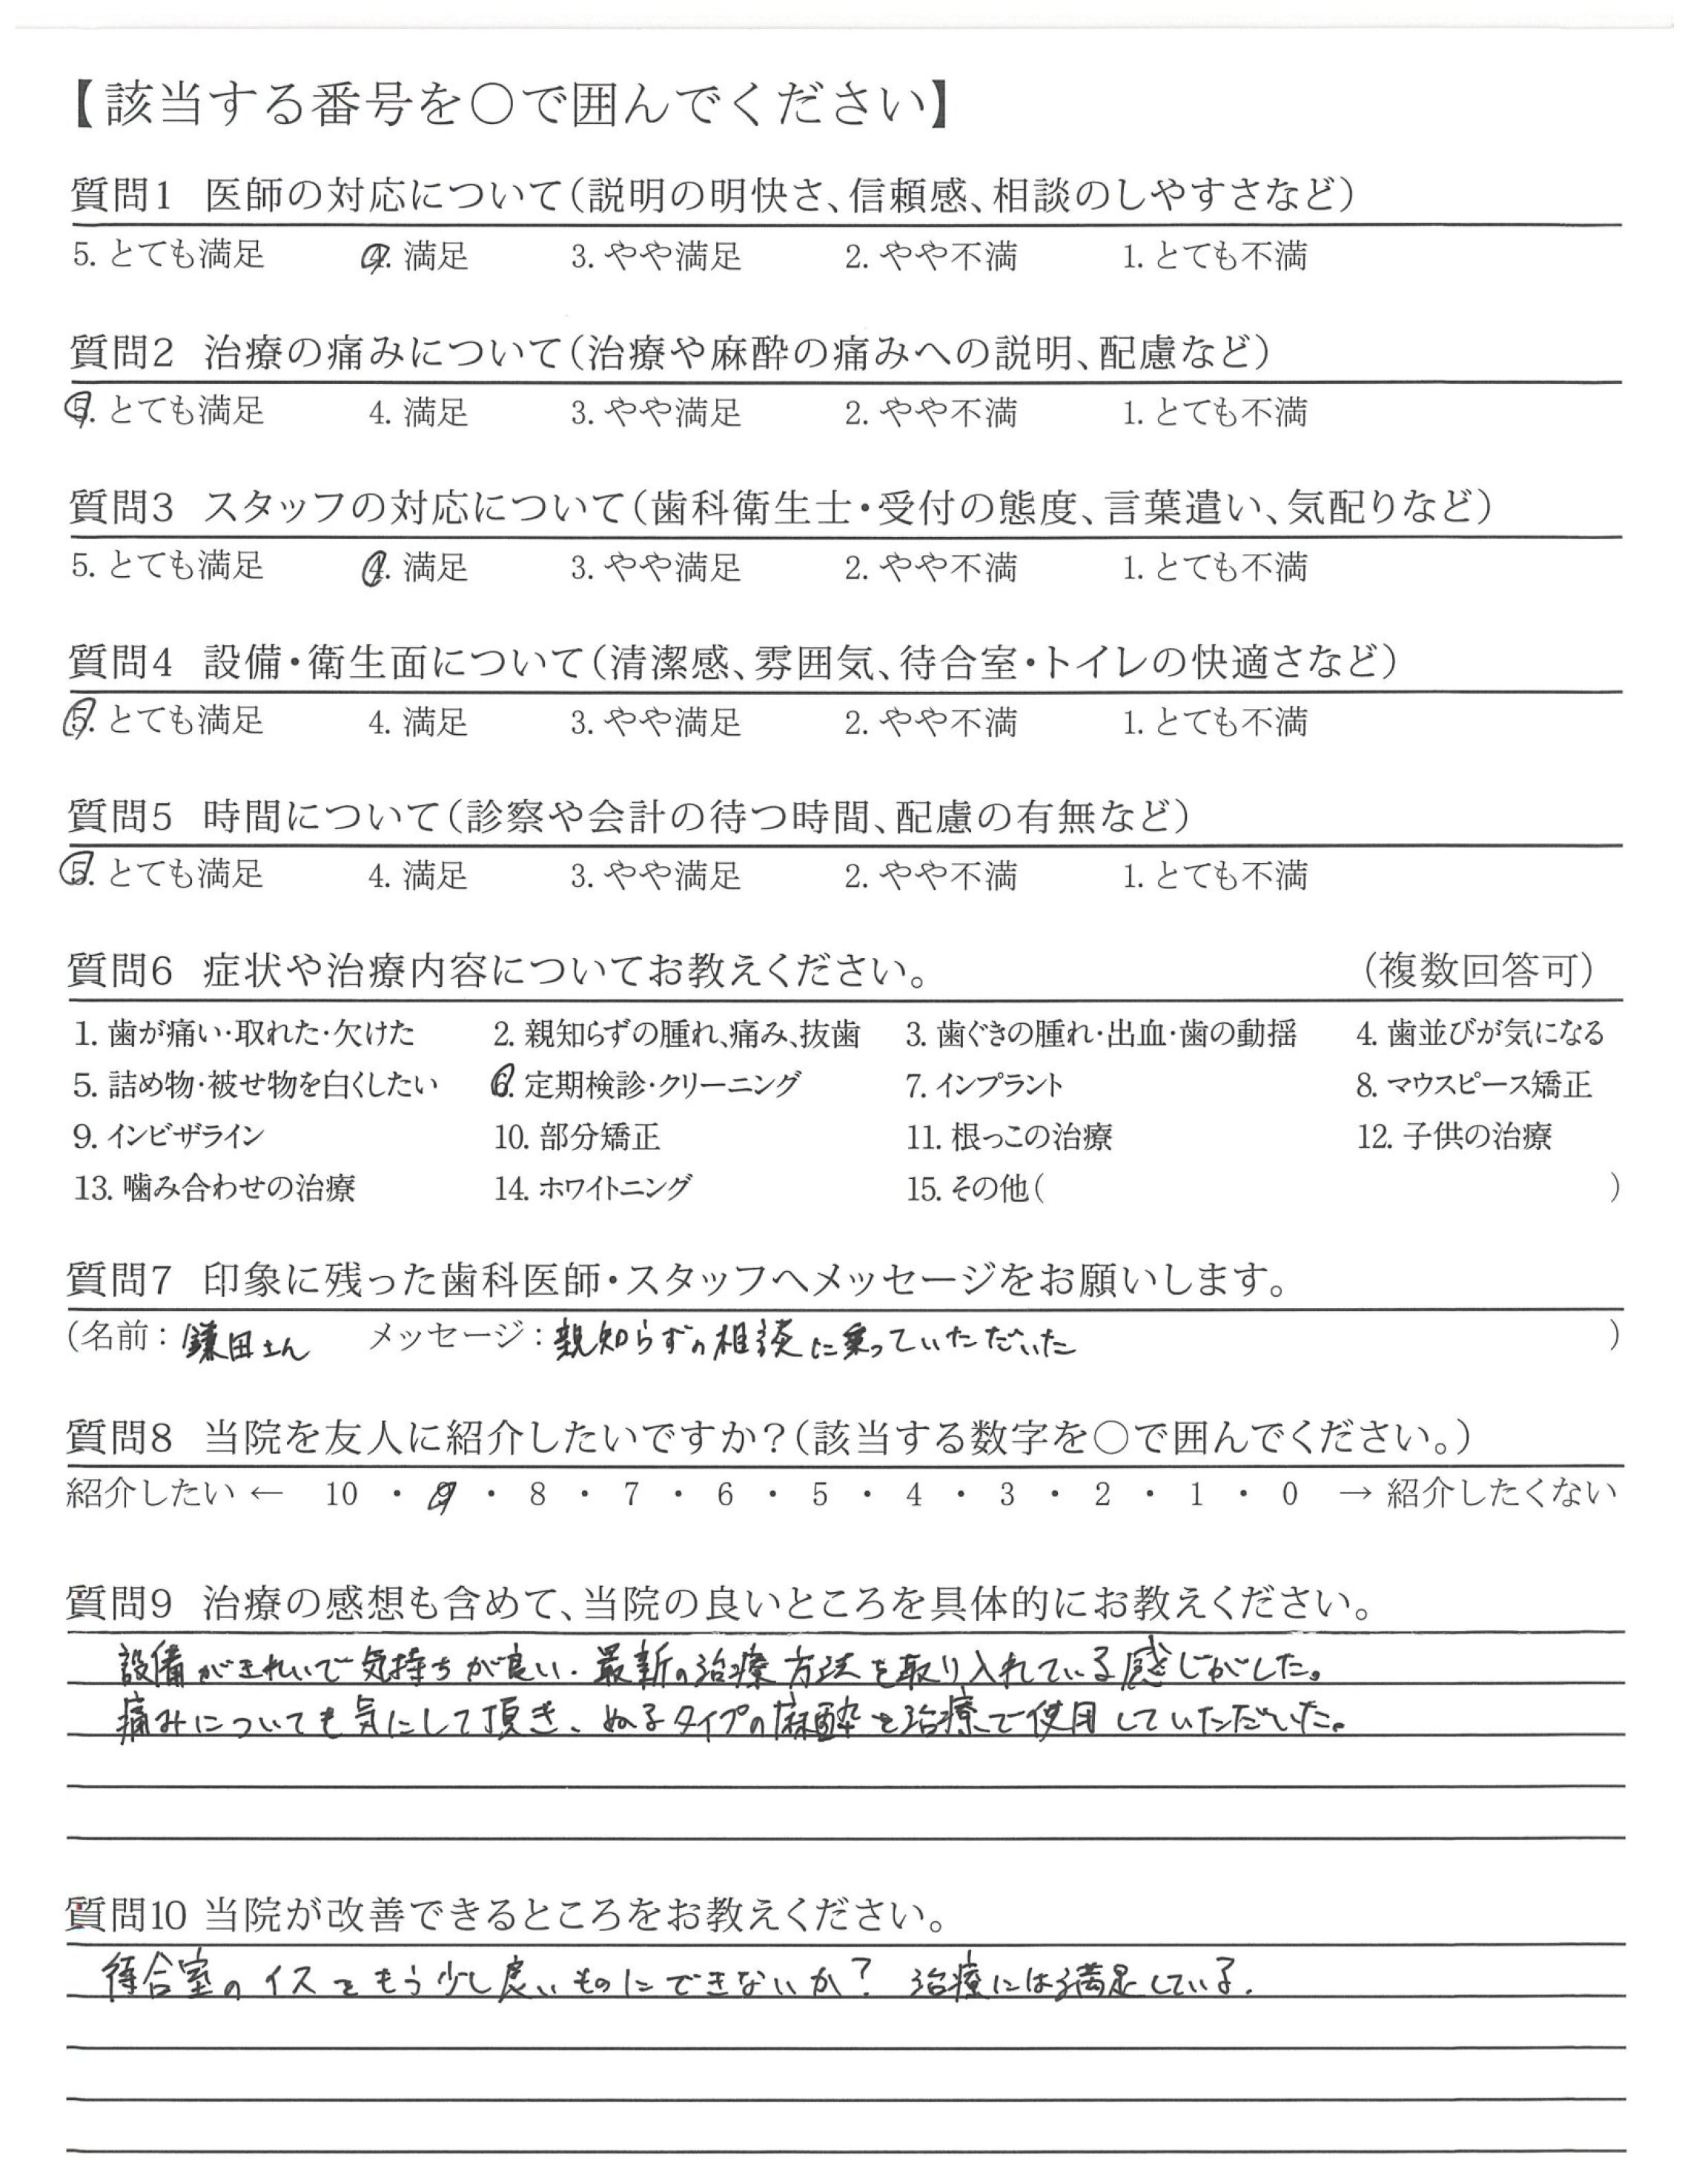 【該当する番号を〇で囲んでください】
質問1 医師の対応について(説明の明快さ、信頼感、相談のしやすさなど)
5. とても満足 4. 満足 3. やや満足 2. やや不満 1. とても不満
質問2 治療の痛みについて(治療や麻酔の痛みへの説明、配慮など)
5. とても満足 4. 満足 3. やや満足 2. やや不満 1. とても不満
質問3 スタッフの対応について(歯科衛生士・受付の態度、言葉遣い、気配りなど)
5. とても満足 4. 満足 3. やや満足 2. やや不満 1. とても不満
質問4 設備・衛生面について(清潔感、雰囲気、待合室・トイレの快適さなど)
5. とても満足 4. 満足 3. やや満足 2. やや不満 1. とても不満
質問5 時間について(診察や会計の待つ時間、配慮の有無など)
5. とても満足 4. 満足 3. やや満足 2. やや不満 1. とても不満
質問6 症状や治療内容についてお教えください。 (複数回答可)
1. 歯が痛い・取れた・欠けた 2. 親知らずの腫れ、痛み、抜歯 3. 歯ぐきの腫れ・出血・歯の動揺 4. 歯並びが気になる
5. 詰め物・被せ物を白くしたい 6. 定期検診・クリーニング 7. インプラント 8. マウスピース矯正
9. インビザライン 10. 部分矯正 11. 根っこの治療 12. 子供の治療
13. 噛み合わせの治療 14. ホワイトニング 15. その他( )
質問7 印象に残った歯科医師・スタッフへメッセージをお願いします。
(名前：鎌田さん メッセージ：親知らずの相談に乗っていただいた )
質問8 当院を友人に紹介したいですか？(該当する数字を〇で囲んでください。)
紹介したい ← 10 ・ 9 ・ 8 ・ 7 ・ 6 ・ 5 ・ 4 ・ 3 ・ 2 ・ 1 ・ 0 → 紹介したくない
質問9 治療の感想も含めて、当院の良いところを具体的にお教えください。
設備がきれいで気持ちが良い。最新の治療方法を取り入れている感じがした。
痛みについても気にして頂き、ぬるタイプの麻酔を治療で使用していただいた。
質問10 当院が改善できるところをお教えください。
待合室のイスをもう少し良いものにできないか？ 治療には満足している。